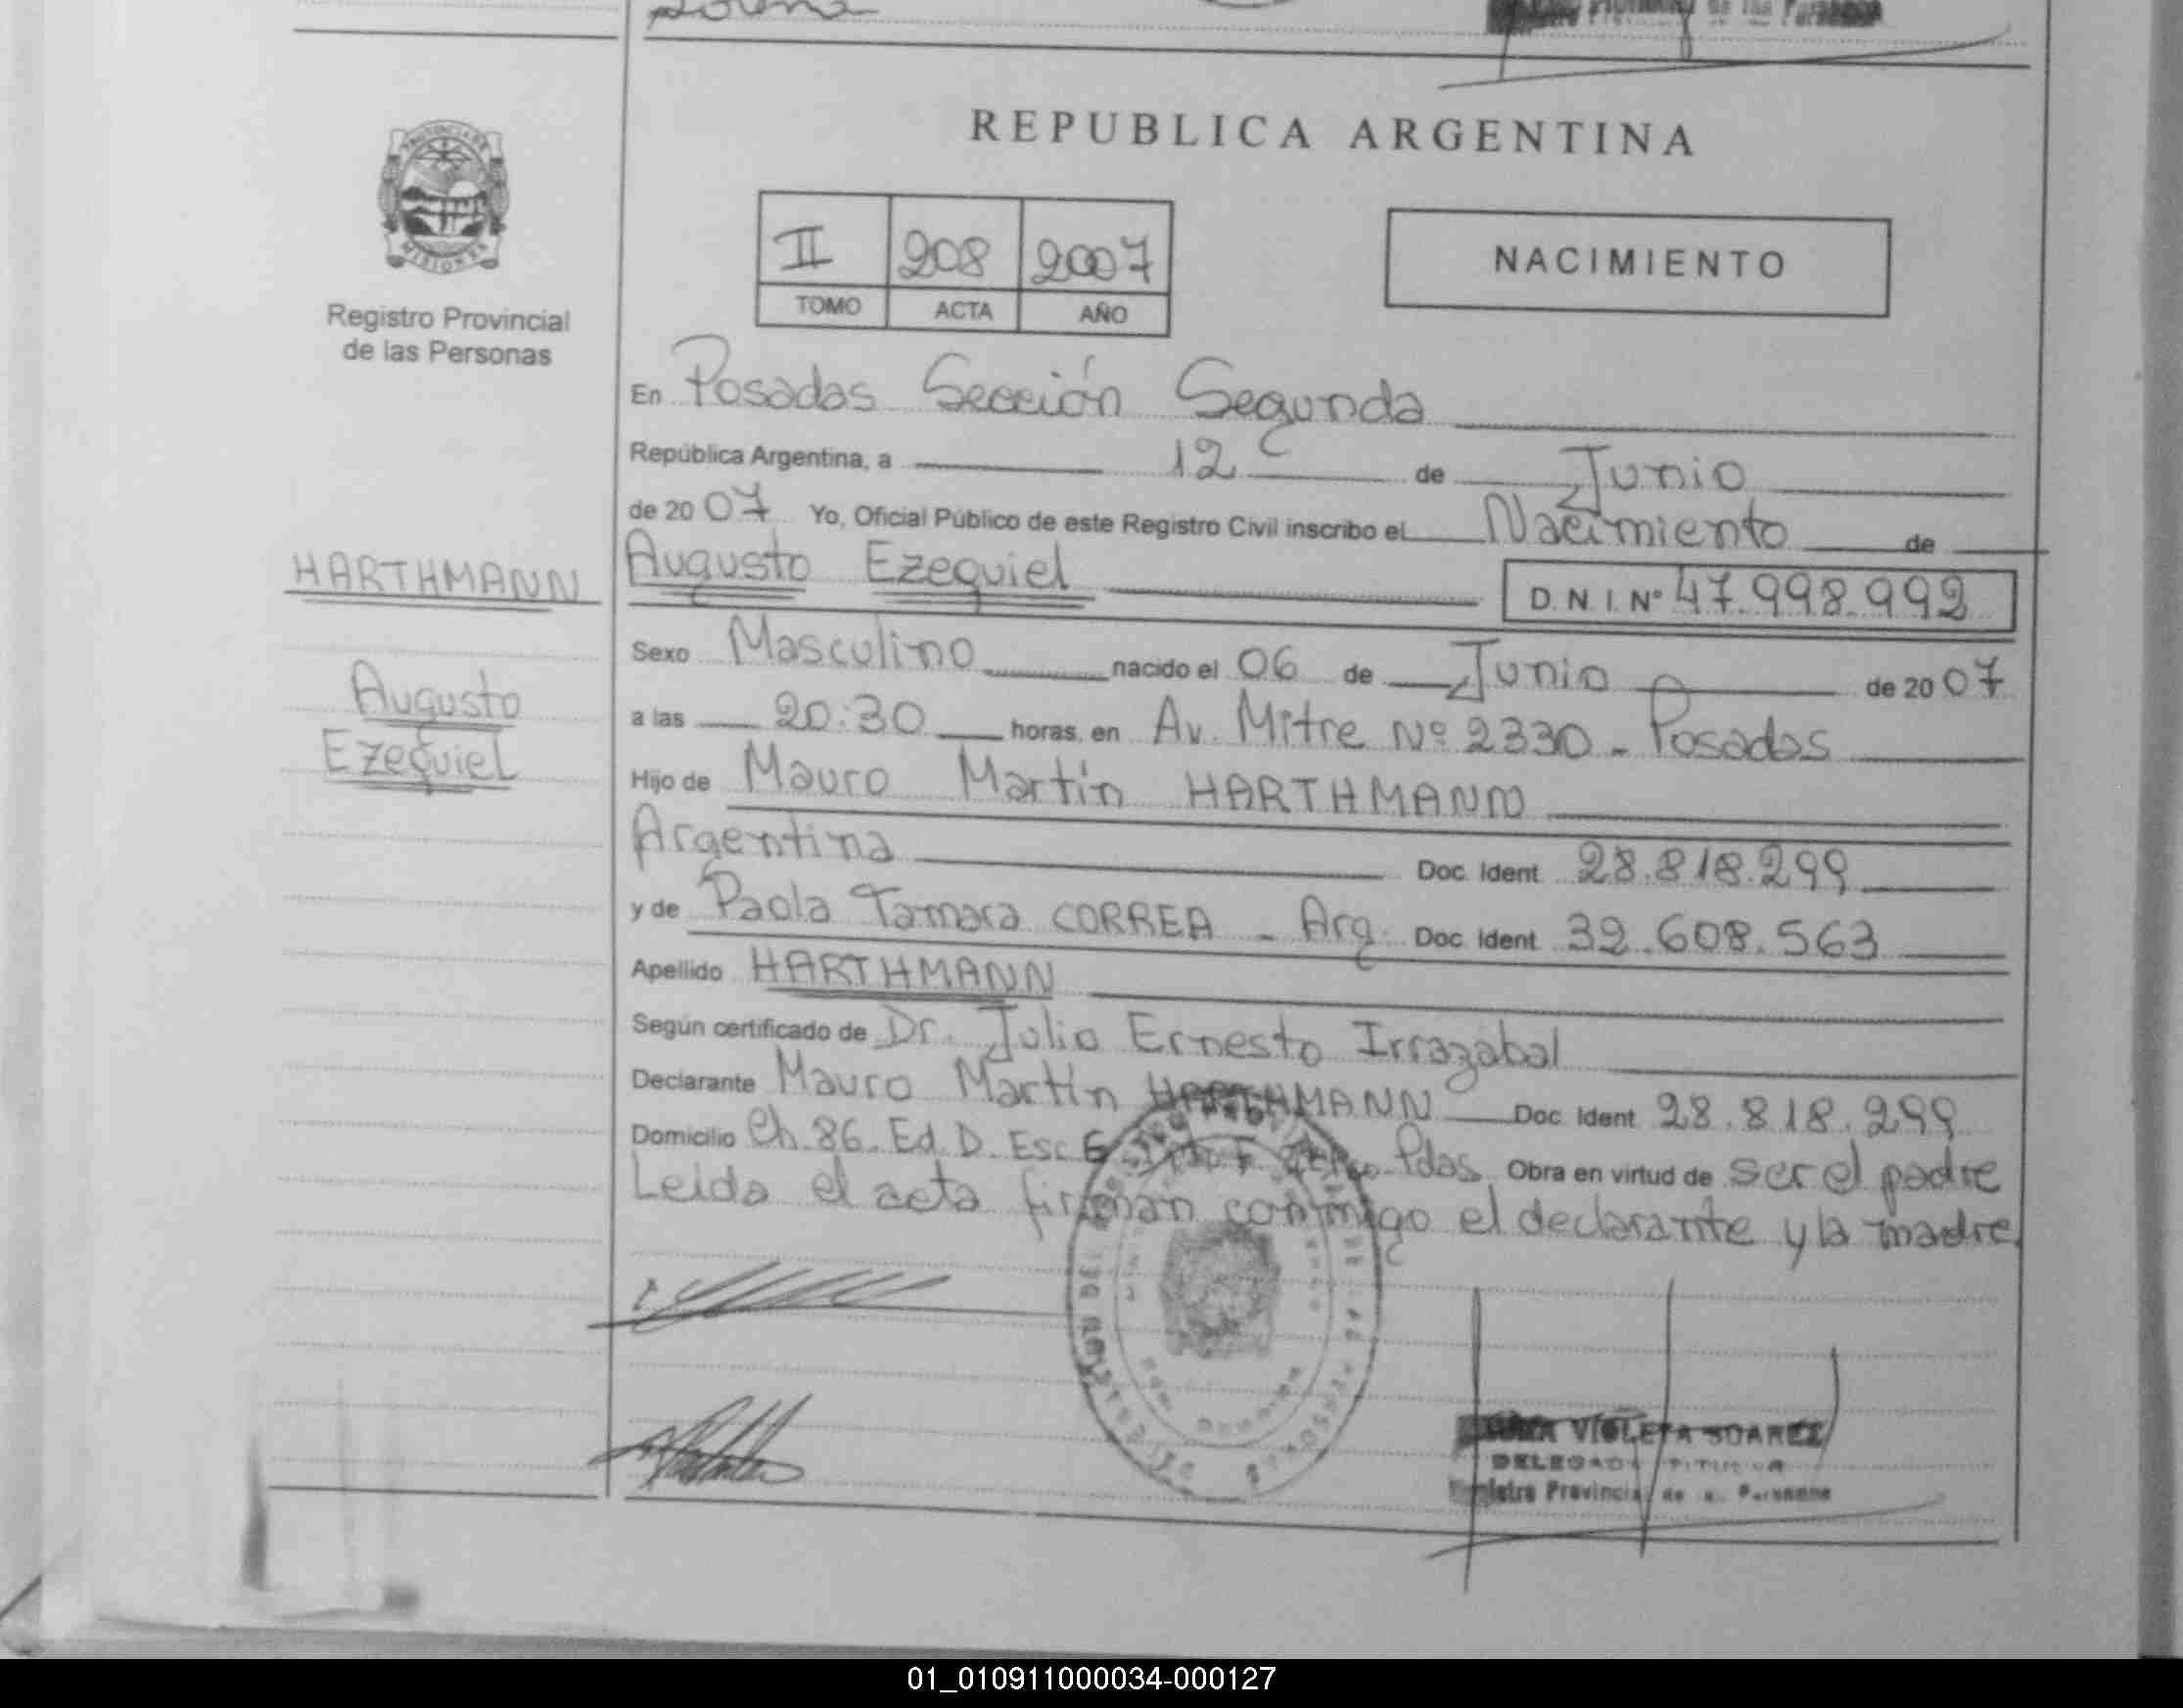 REPUBLICA ARGENTINA
PROVINCIA DE
MISIONES
Registro Provincial
de las Personas
II 208 2007
TOMO ACTA AÑO
NACIMIENTO
En Posadas Sección Segunda
República Argentina, a 12 de Junio
de 2007 Yo, Oficial Público de este Registro Civil inscribo el Nacimiento de
HARTHMANN
Augusto Ezequiel
D.N.I. Nº 47.998.992
Augusto
Ezequiel
Sexo Masculino nacido el 06 de Junio de 2007
a las 20:30 horas, en Av. Mitre Nº 2330 - Posadas
Hijo de Mauro Martín HARTHMANN
Argentina Doc. Ident. 28.818.299
y de Paola Tamara CORREA - Arg. Doc. Ident. 32.608.563
Apellido HARTHMANN
Según certificado de Dr. Julio Ernesto Irrazabal
Declarante Mauro Martín HARTHMANN Doc. Ident. 28.818.299
Domicilio Ch. 86. Ed. D. Esc. Pdas. Obra en virtud de ser el padre
Leida el acta firman conmigo el declarante y la madre.
VIOLETA SUAREZ
DELEGADA TITULAR
Registro Provincial de las Personas
01_010911000034-000127